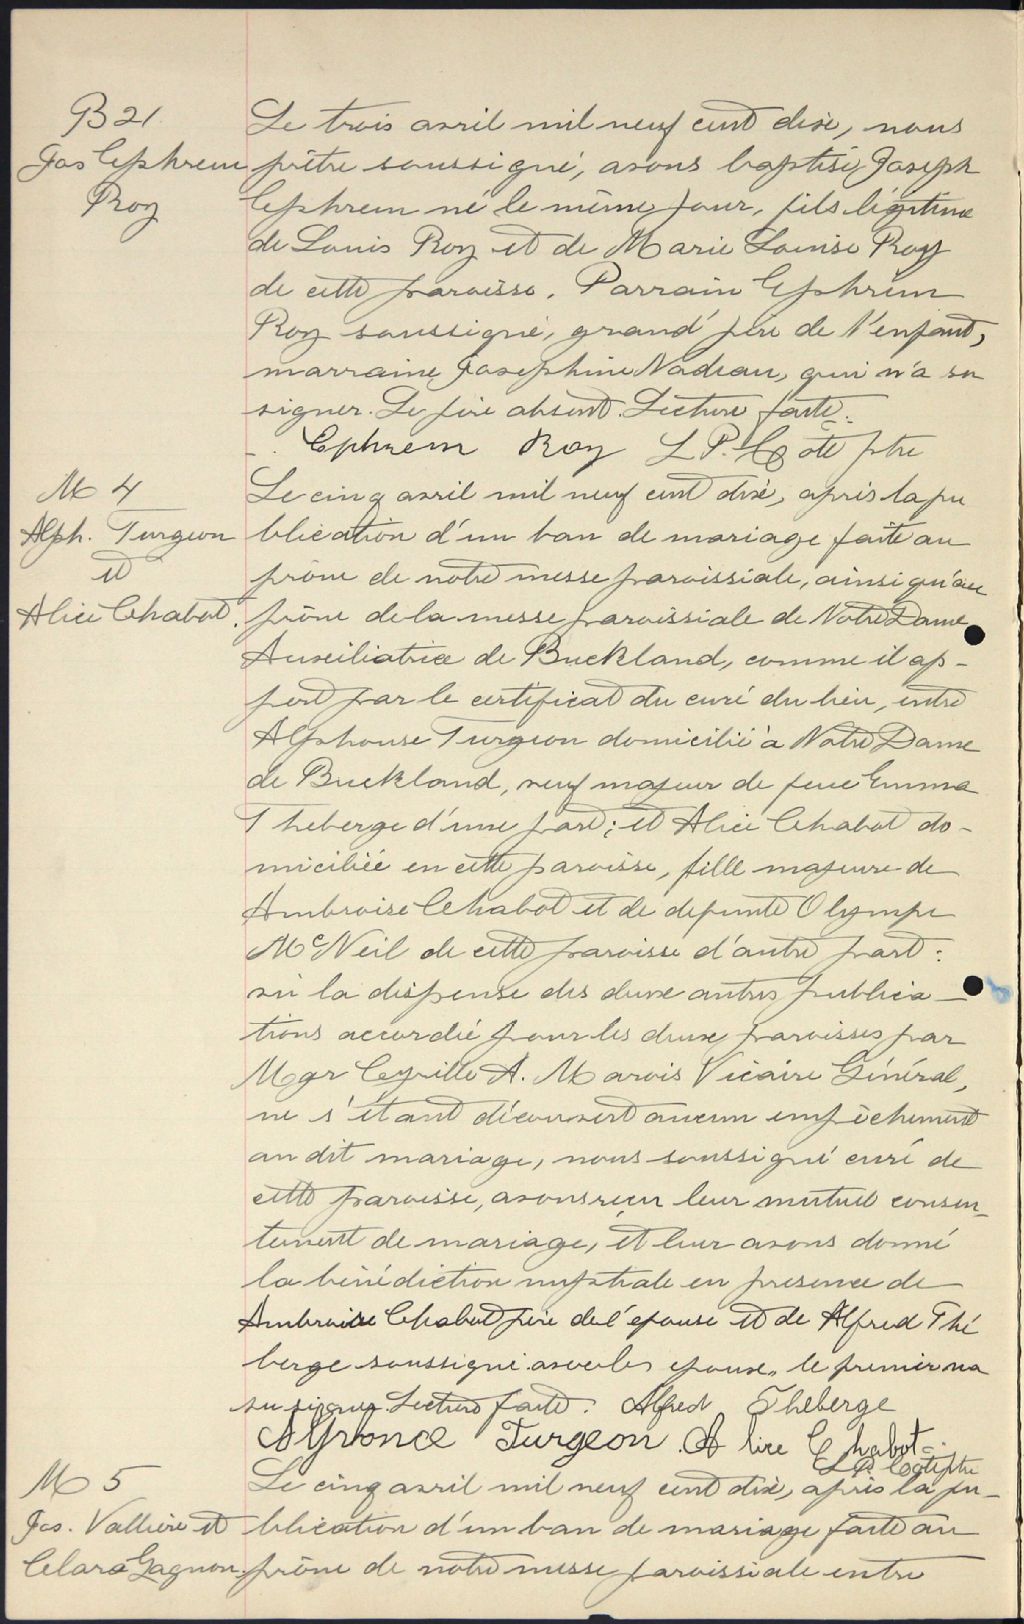 B 21
Jos Ephrem
Roy
Le trois avril mil neuf cent dix, nous
prêtre soussigné, avons baptisé Joseph
Ephrem né le même jour, fils légitime
de Louis Roy et de Marie Louise Roy
de cette paroisse. Parrain Ephrem
Roy soussigné, grand'père de l'enfant,
marraine Josephine Nadeau, qui n'a su
signer. Le père absent. Lecture faite.
Ephrem Roy L P. Côté ptre
M 4
Alph. Turgeon
et
Alice Chabot.
Le cinq avril mil neuf cent dix, après la pu
blication d'un ban de mariage faite au
prône de notre messe paroissiale, ainsi qu'au
prône de la messe paroissiale de Notre Dame
Auxiliatrice de Buckland, comme il ap-
pert par le certificat du curé du lieu, entre
Alphonse Turgeon domicilié à Notre Dame
de Buckland, veuf majeur de feue Emma
Theberge d'une part; et Alice Chabot do-
miciliée en cette paroisse, fille majeure de
Ambroise Chabot et de defunte Olympe
McNeil de cette paroisse d'autre part:
vu la dispense des deux autres publica-
tions accordée pour les deux paroisses par
Mgr Cyrille A. Marois Vicaire Général,
ne s'étant découvert aucun empêchement
au dit mariage, nous soussigné curé de
cette paroisse, avons reçu leur mutuel consen-
tement de mariage, et leur avons donné
la bénédiction nuptiale en presence de
Ambroise Chabot père de l'épouse et de Alfred Thé
berge soussigné avec les epoux, le premier n'a
su signer. Lecture faite. Alfred Theberge
Alphonce Turgeon Alice Chabot
L.P. Côté ptre
M 5
Jos. Vallière et
Clara Gagnon
Le cinq avril mil neuf cent dix, après la pu-
blication d'un ban de mariage faite au
prône de notre messe paroissiale entre